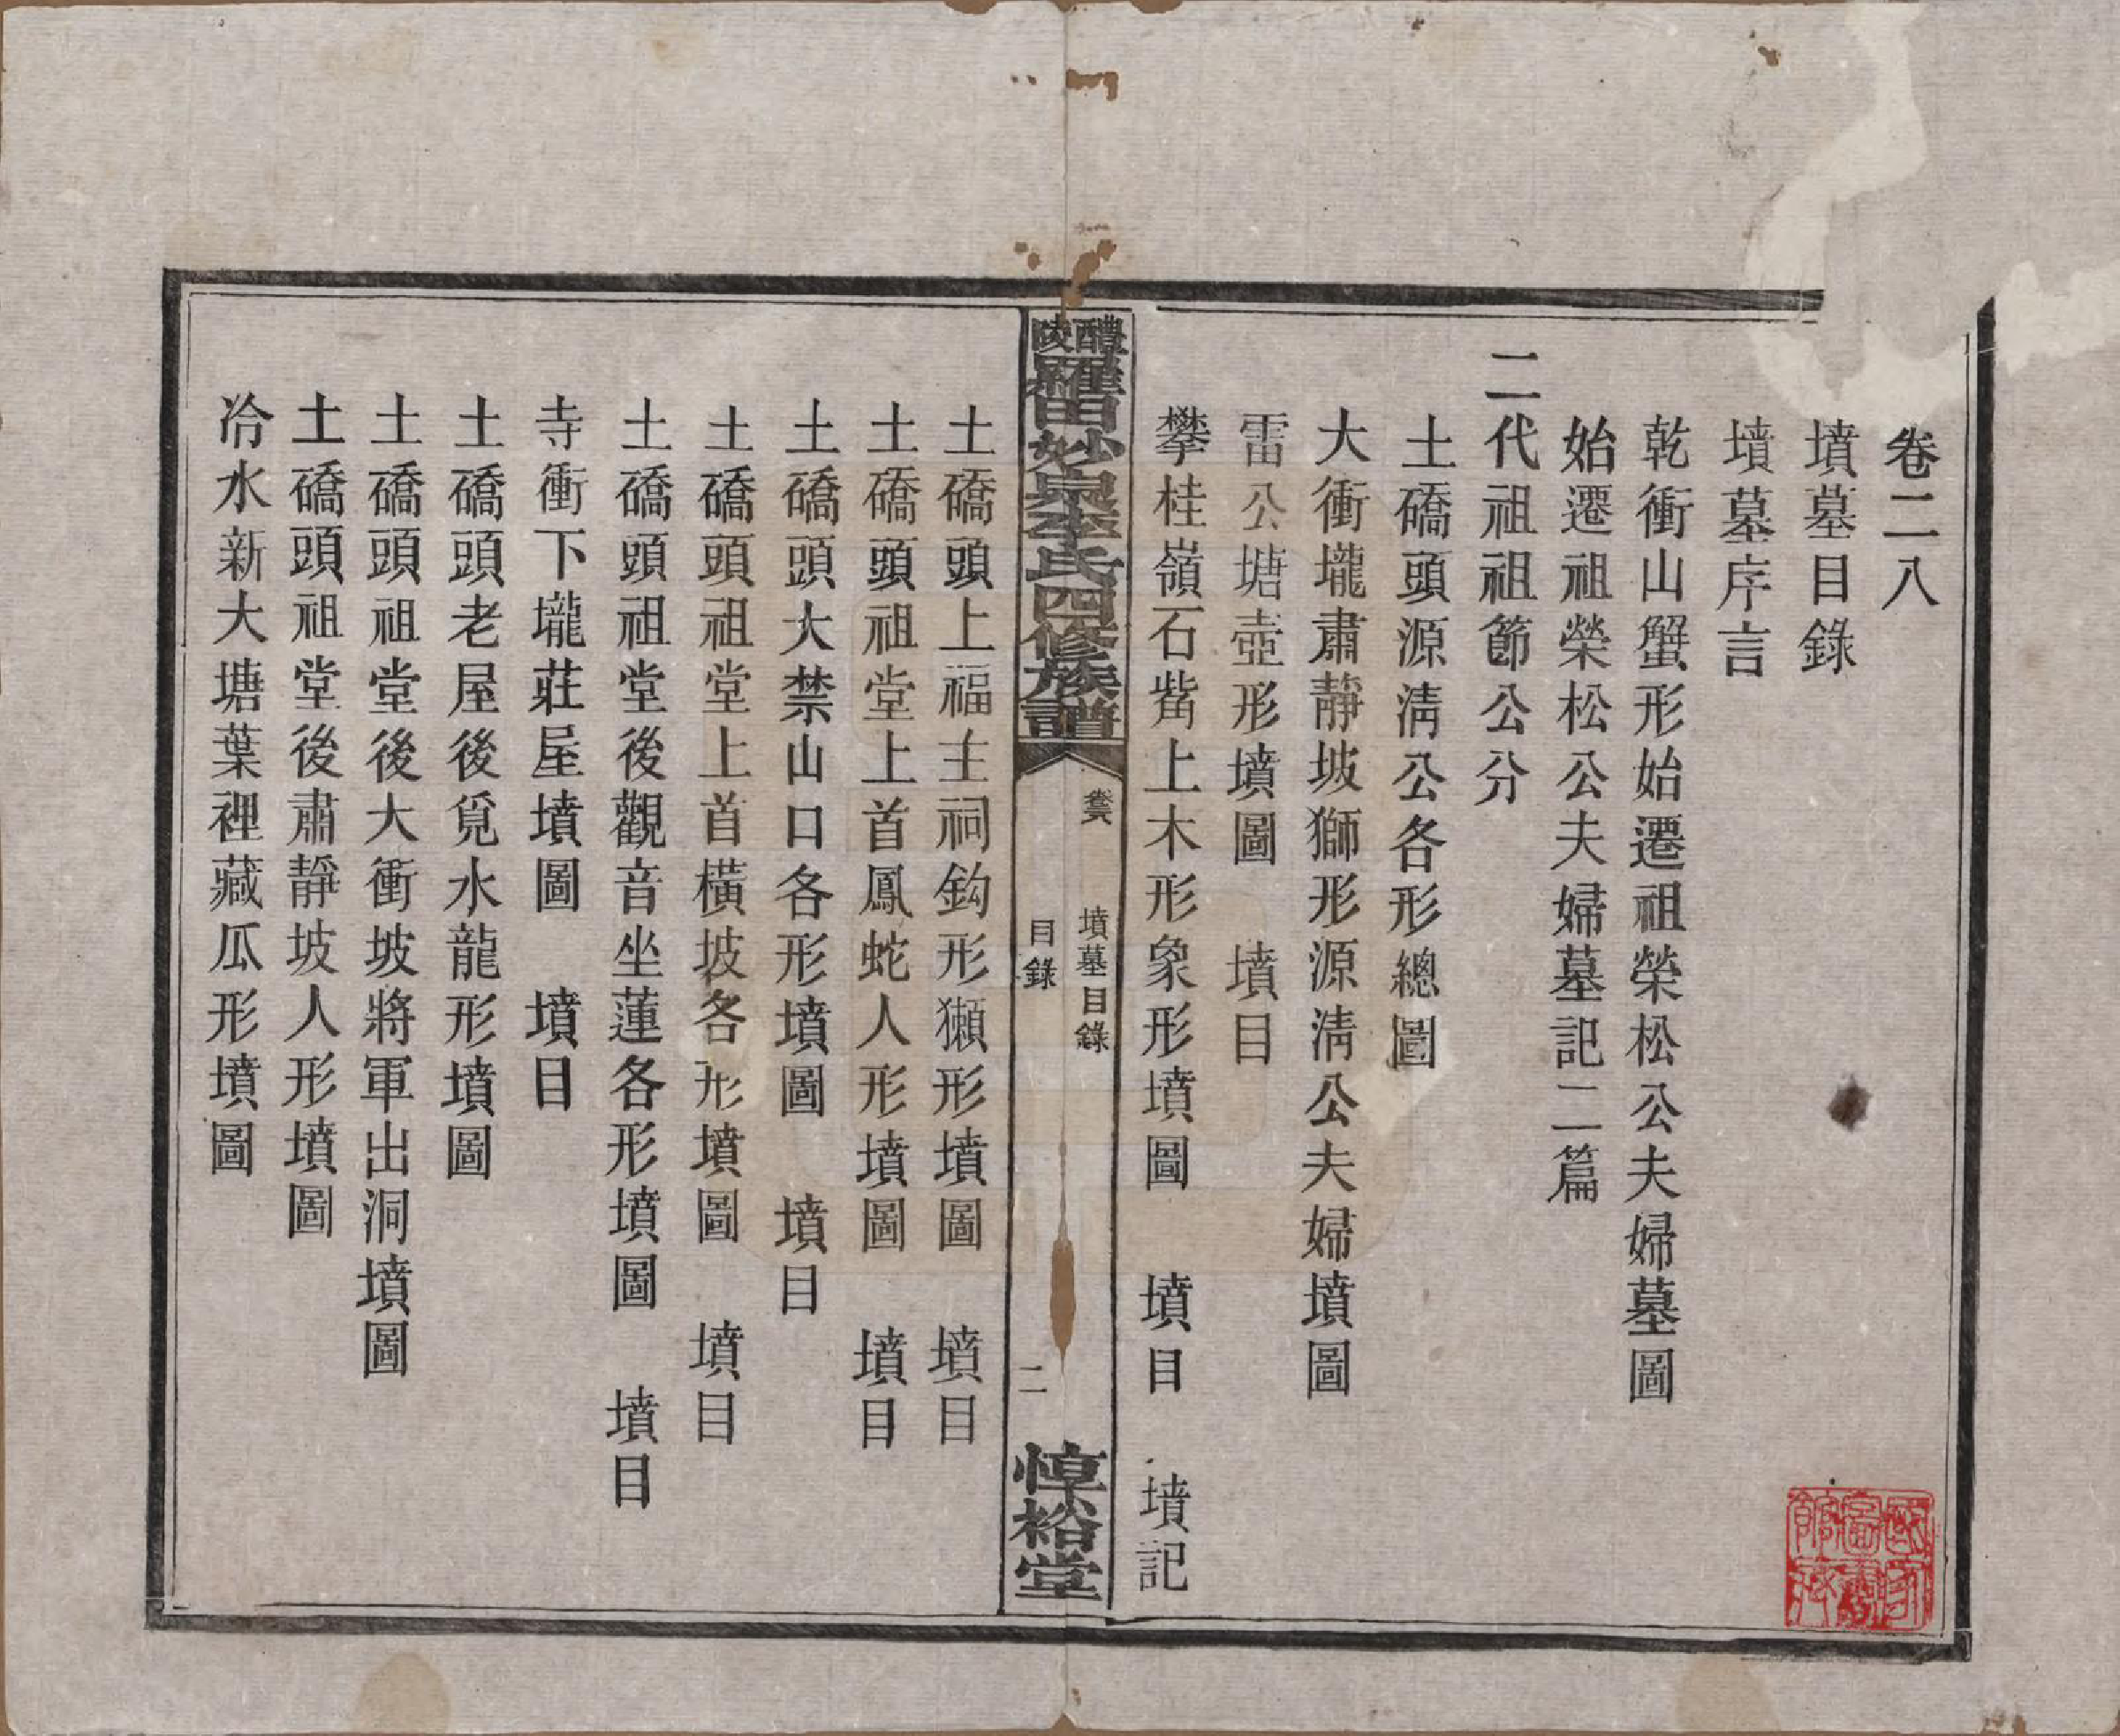 卷二八
墳墓目錄
墳墓序言
乾衝山蟹形始遷祖榮松公夫婦墓圖
始遷祖榮松公夫婦墓記二篇
二代祖祖節公分
土礄頭源淸公各形總圖
大衝壠肅靜坡獅形源淸公夫婦墳圖
雷公塘壺形墳圖　墳目
攀桂嶺石觜上木形象形墳圖　墳目　墳記
醴陵羅田妙泉李氏四修族譜
墳墓目錄
目錄
二
惇裕堂
土礄頭上福主祠鈎形獺形墳圖　墳目
土礄頭祖堂上首鳳蛇人形墳圖　墳目
土礄頭大禁山口各形墳圖　墳目
土礄頭祖堂上首橫坡各形墳圖　墳目
土礄頭祖堂後觀音坐蓮各形墳圖　墳目
寺衝下壠莊屋墳圖　墳目
土礄頭老屋後覓水龍形墳圖
土礄頭祖堂後大衝坡將軍出洞墳圖
土礄頭祖堂後肅靜坡人形墳圖
冷水新大塘葉裡藏瓜形墳圖
國家圖書館藏